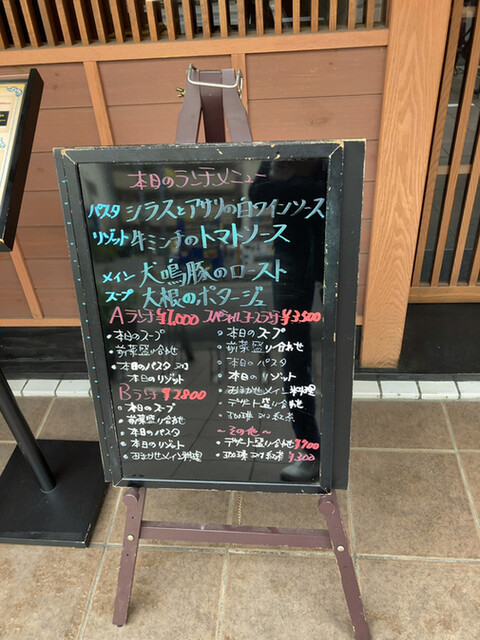 本日のランチメニュー
パスタ シラスとアサリの白ワインソース
リゾット 牛ミンチのトマトソース
メイン 犬鳴豚のロースト
スープ 大根のポタージュ
Aランチ ¥1,000
・本日のスープ
・前菜盛り合わせ
・本日のパスタ or
本日のリゾット
Bランチ ¥2800
・本日のスープ
・前菜盛り合わせ
・本日のパスタ
・本日のリゾット
・おまかせメイン料理
スペシャルコースランチ ¥3,500
・本日のスープ
・前菜盛り合わせ
・本日のパスタ
・本日のリゾット
・おまかせメイン料理
・デザート盛り合わせ
・珈琲 or 紅茶
〜その他〜
・デザート盛り合わせ ¥700
・珈琲 or 紅茶 ¥300